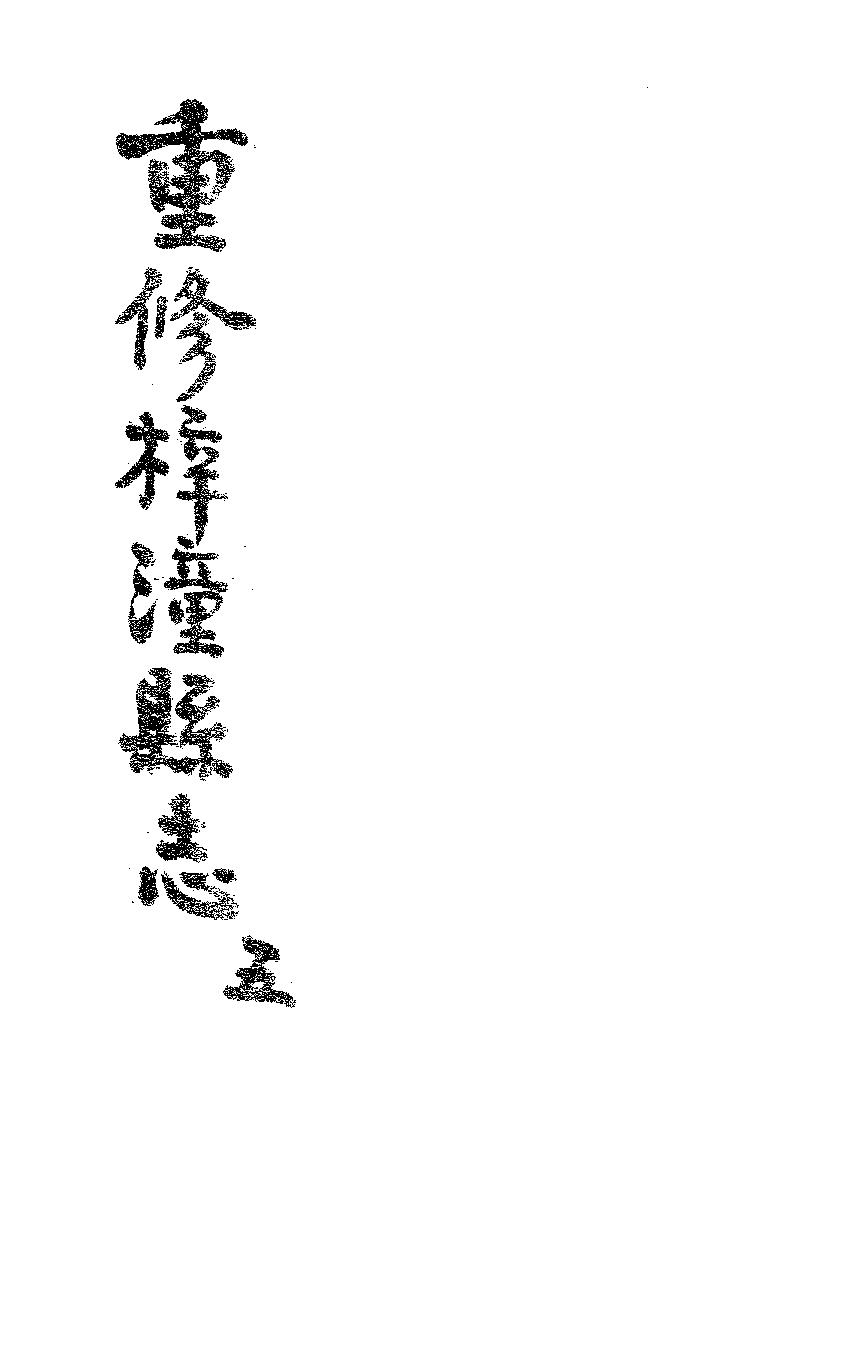 重修梓潼縣志
五